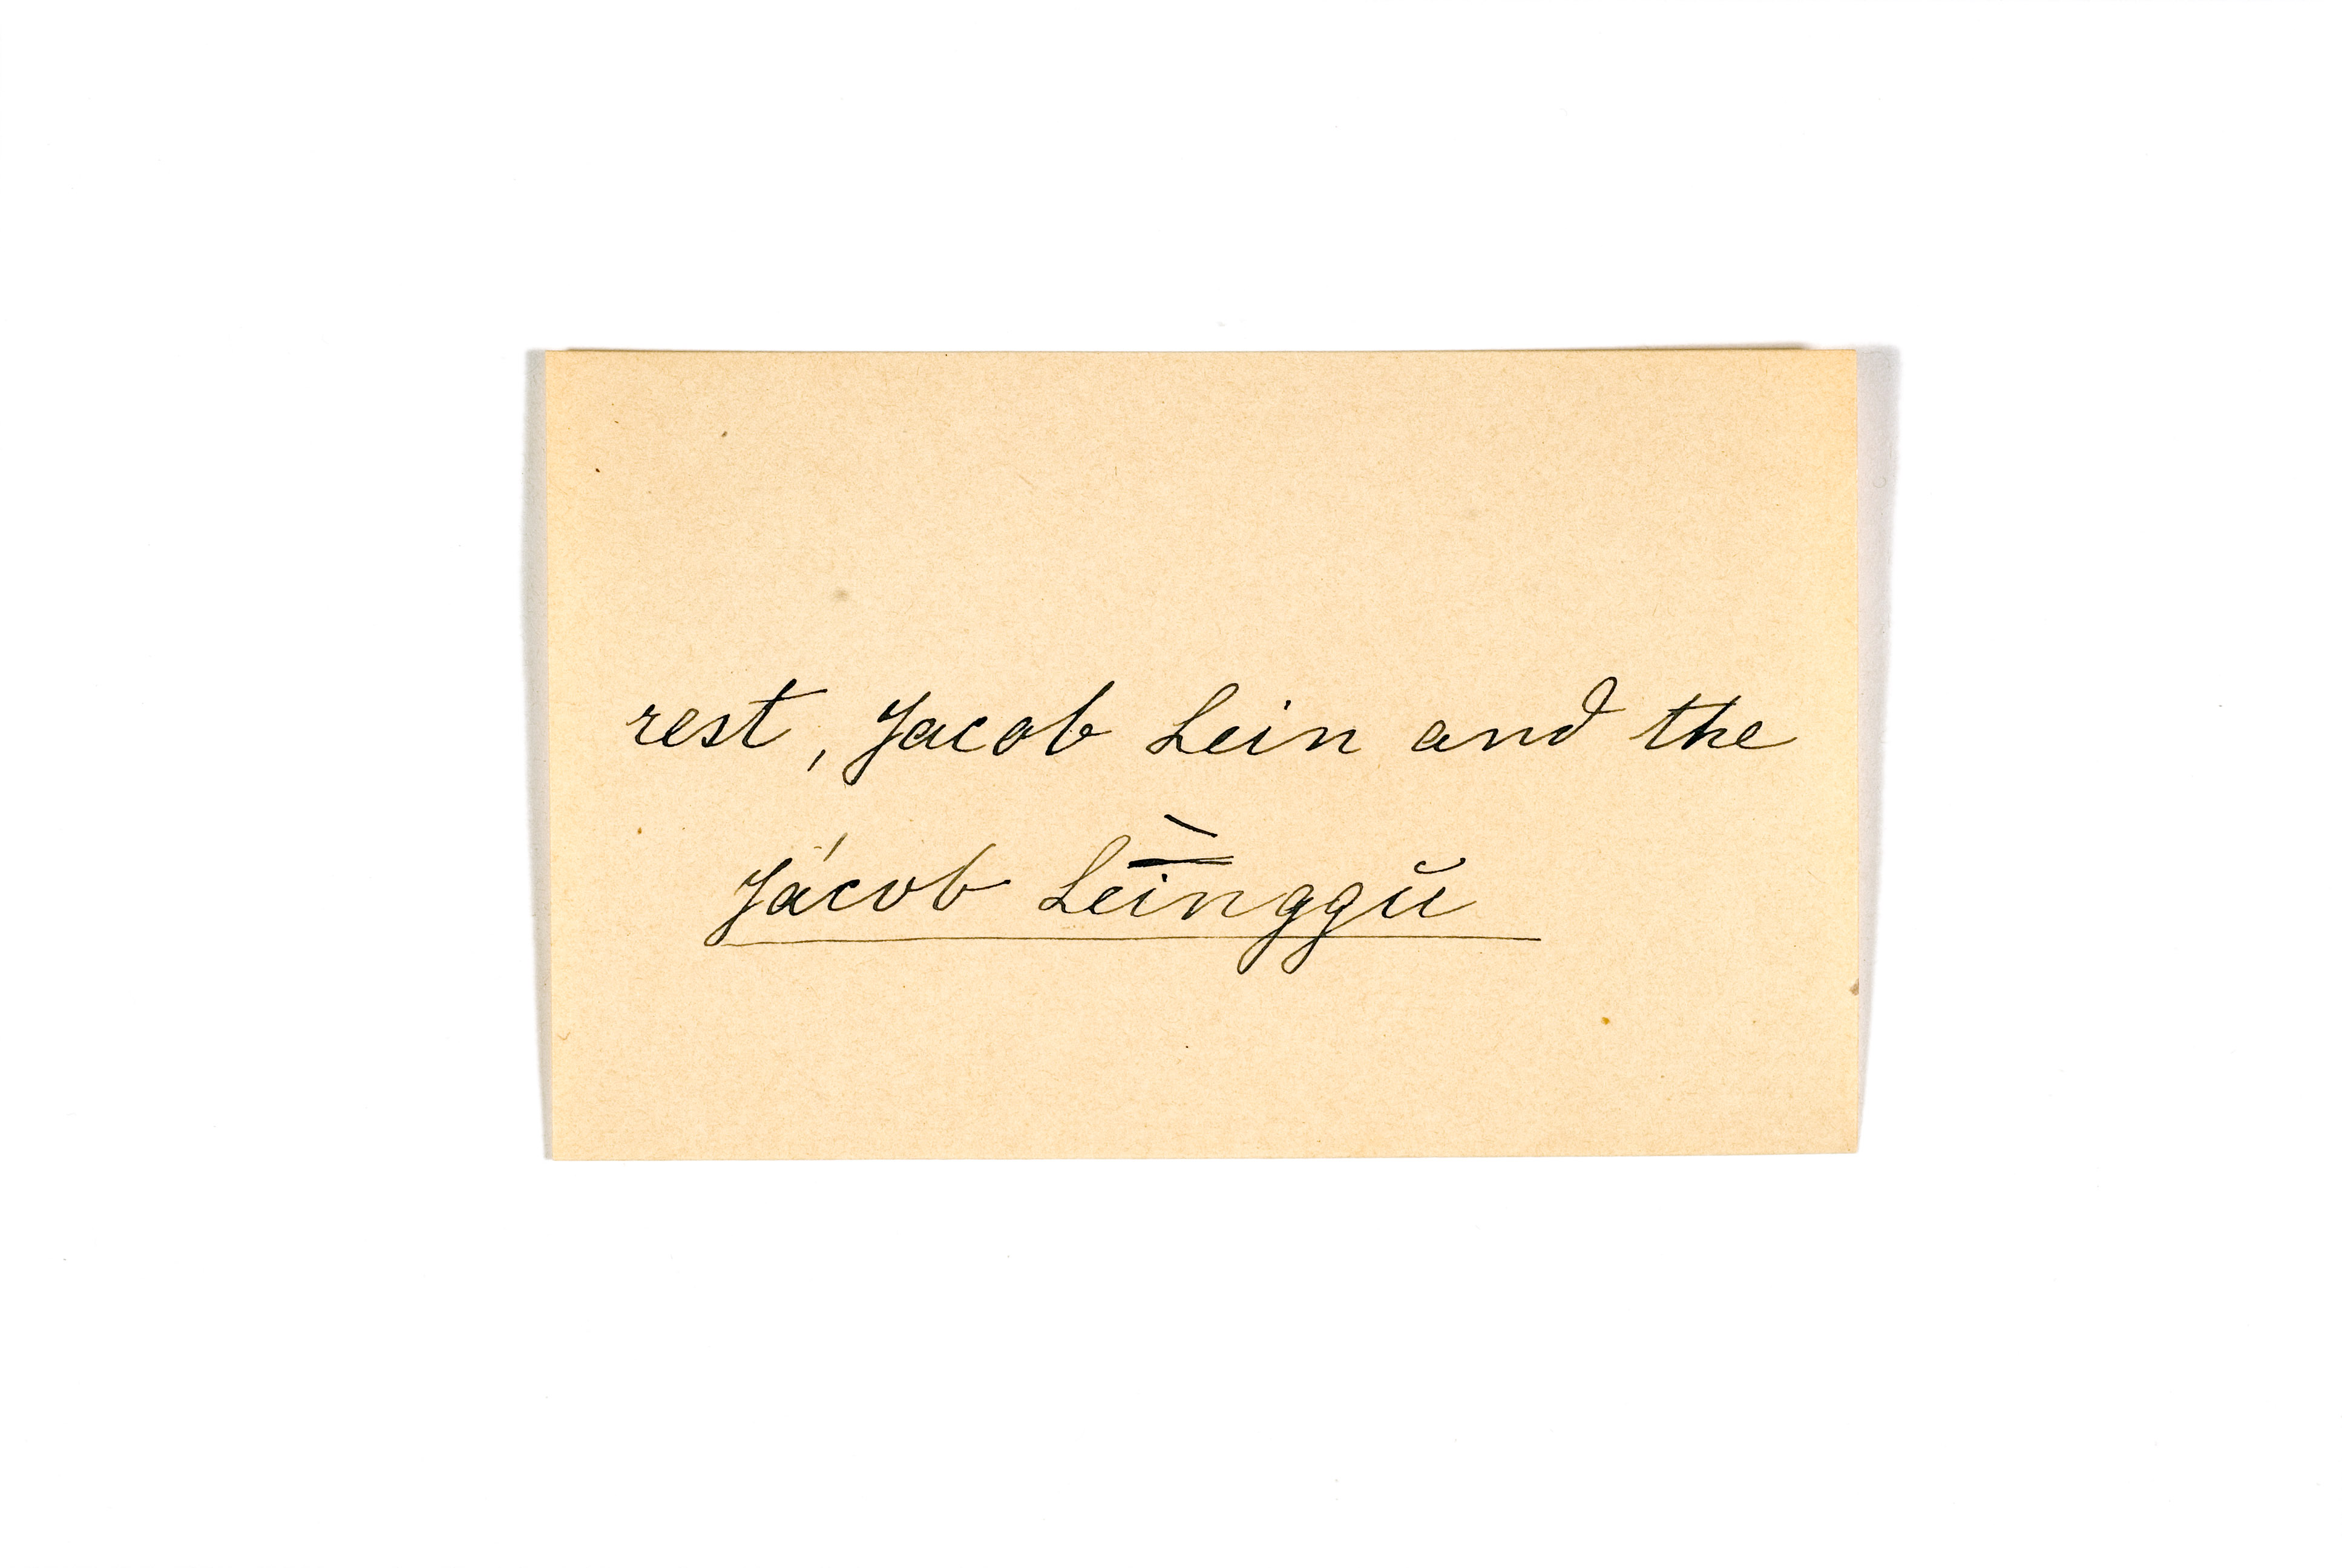 rest, Jacob Lein and the
Jácob Leinggŭ